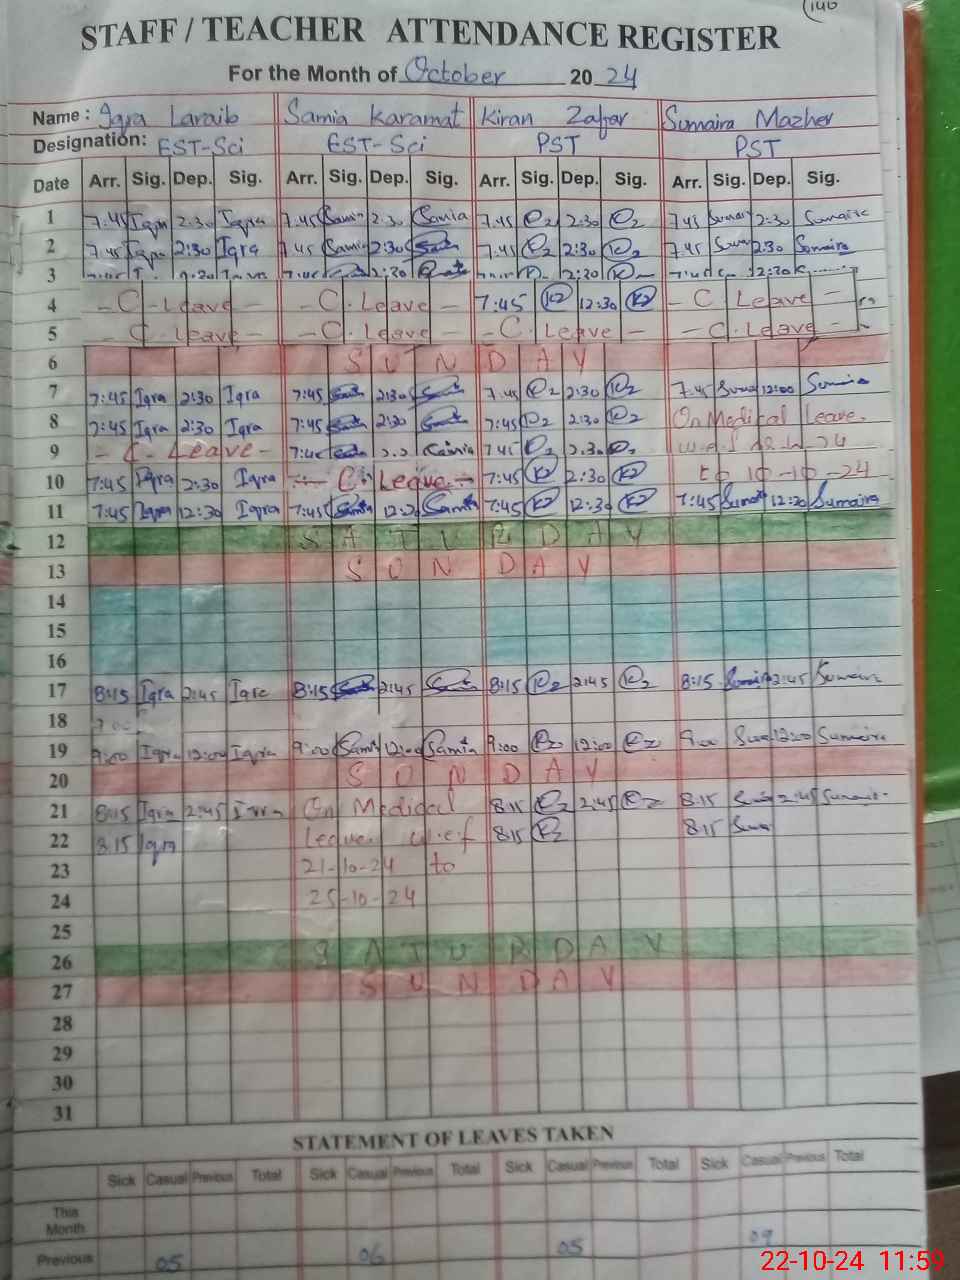 140
STAFF / TEACHER ATTENDANCE REGISTER
For the Month of October 2024
Name : Iqra Laraib Samia Karamat Kiran Zafar Sumaira Mazher
Designation: EST-Sci EST-Sci PST PST
Date Arr. Sig. Dep. Sig. Arr. Sig. Dep. Sig. Arr. Sig. Dep. Sig. Arr. Sig. Dep. Sig.
1 7:45 Iqra 2:30 Iqra 7:45 Samia 2:30 Samia 7:45 2:30 7:45 Sumaira 2:30 Sumaira
2 7:45 Iqra 2:30 Iqra 7:45 Samia 2:30 7:45 2:30 7:45 2:30 Sumaira
3 2:30 2:30 2:30
4 - C. Leave - - C. Leave - 7:45 KZ 12:30 KZ - C Leave -
5 - C. Leave - - C. Leave - - C. Leave - - C. Leave -
6 SUNDAY
7 7:45 Iqra 2:30 Iqra 7:45 2:30 7:45 2:30 7:45 12:00 Sumaira
8 7:45 Iqra 2:30 Iqra 7:45 2:30 7:45 2:30 On Medical Leave.
9 - C. Leave - 7:45 Samia 7:45 2:30 24
10 7:45 Iqra 2:30 Iqra - C. Leave - 7:45 KZ 2:30 KZ to 10-10-24
11 7:45 Iqra 12:30 Iqra 7:45 Samia Samia 7:45 KZ 12:30 KZ 7:45 12:30 Sumaira
12 SATURDAY
13 SUNDAY
14
15
16
17 8:15 Iqra 2:45 Iqra 8:15 2:45 8:15 2:45 8:15 2:45 Sumaira
18
19 9:00 Iqra 12:00 Iqra 9:00 Samia 12:00 Samia 9:00 12:00 9:00 12:00 Sumaira
20 SUNDAY
21 8:15 Iqra 2:45 Iqra On Medical 8:15 2:45 8:15 2:45
22 8:15 Iqra Leave w.e.f 8:15 KZ 8:15
23 21-10-24 to
24 25-10-24
25
26 SATURDAY
27 SUNDAY
28
29
30
31
STATEMENT OF LEAVES TAKEN
Sick Casual Previous Total Sick Casual Previous Total Sick Casual Previous Total Sick Casual Previous Total
This Month
Previous 05 06 05 09
22-10-24 11:59